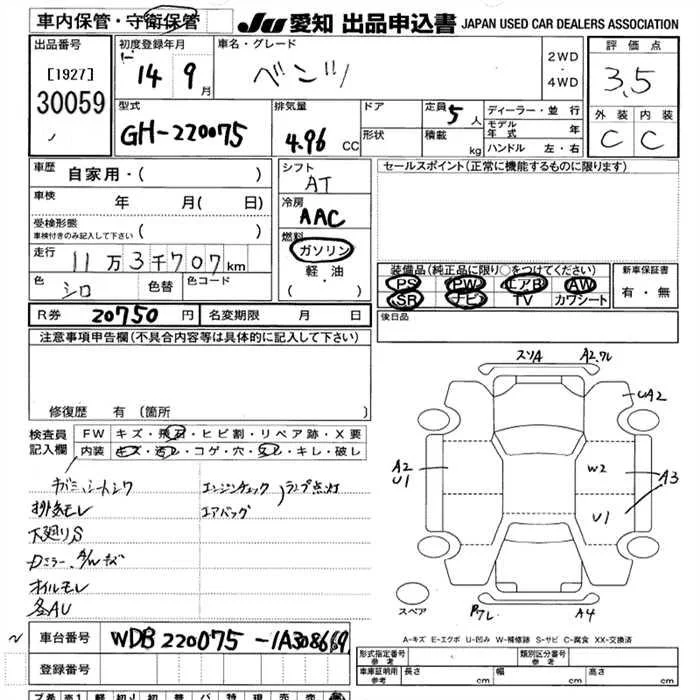 車内保管・守衛保管 JU 愛知 出品申込書 JAPAN USED CAR DEALERS ASSOCIATION
出品番号
[1927]
30059
初度登録年月
14 9月
車名・グレード
ベンツ
2WD
・
4WD
評価点
3.5
外装 内装
C C
型式
GH-220075
排気量
4.96 CC
ドア
形状
定員 5人
積載 kg
ディーラー・並行
モデル年式 年
ハンドル 左・右
車歴 自家用・( )
車検 年 月( 日)
受検形態
車検付きのみ記入して下さい ( )
走行 11万3千707km
色 シロ 色替 色コード
シフト
AT
冷房
AAC
燃料
ガソリン
軽・油
( ・ )
セールスポイント(正常に機能するものに限ります)
装備品(純正品に限り○をつけてください)
PS PW エアB AW
SR ナビ TV カワシート
新車保証書
有・無
R券 20750円 名変期限 月 日
後日品
注意事項申告欄(不具合内容等は具体的に記入して下さい)
修復歴 有 (箇所 )
検査員
記入欄
FW キズ・飛石・ヒビ割・リペア跡・X要
内装 キズ・汚レ・コゲ・穴・欠レ・キレ・破レ
排気モレ
下廻りS
Dミラー、A/Wキズ
オイルモレ
各AU
エンジンチェック
エアバッグ
ランプ点灯
スソA
A2.ワレ
UA2
A2
U1
W2
A3
U1
スペア
A4
A-キズ E-エクボ U-凹み W-補修跡 S-サビ C-腐食 XX-交換済
車台番号 WDB220075-1A308669
登録番号
形式指定番号
参考
類別区分番号
参考
車庫証明用
参考
長さ cm 幅 cm 高さ cm